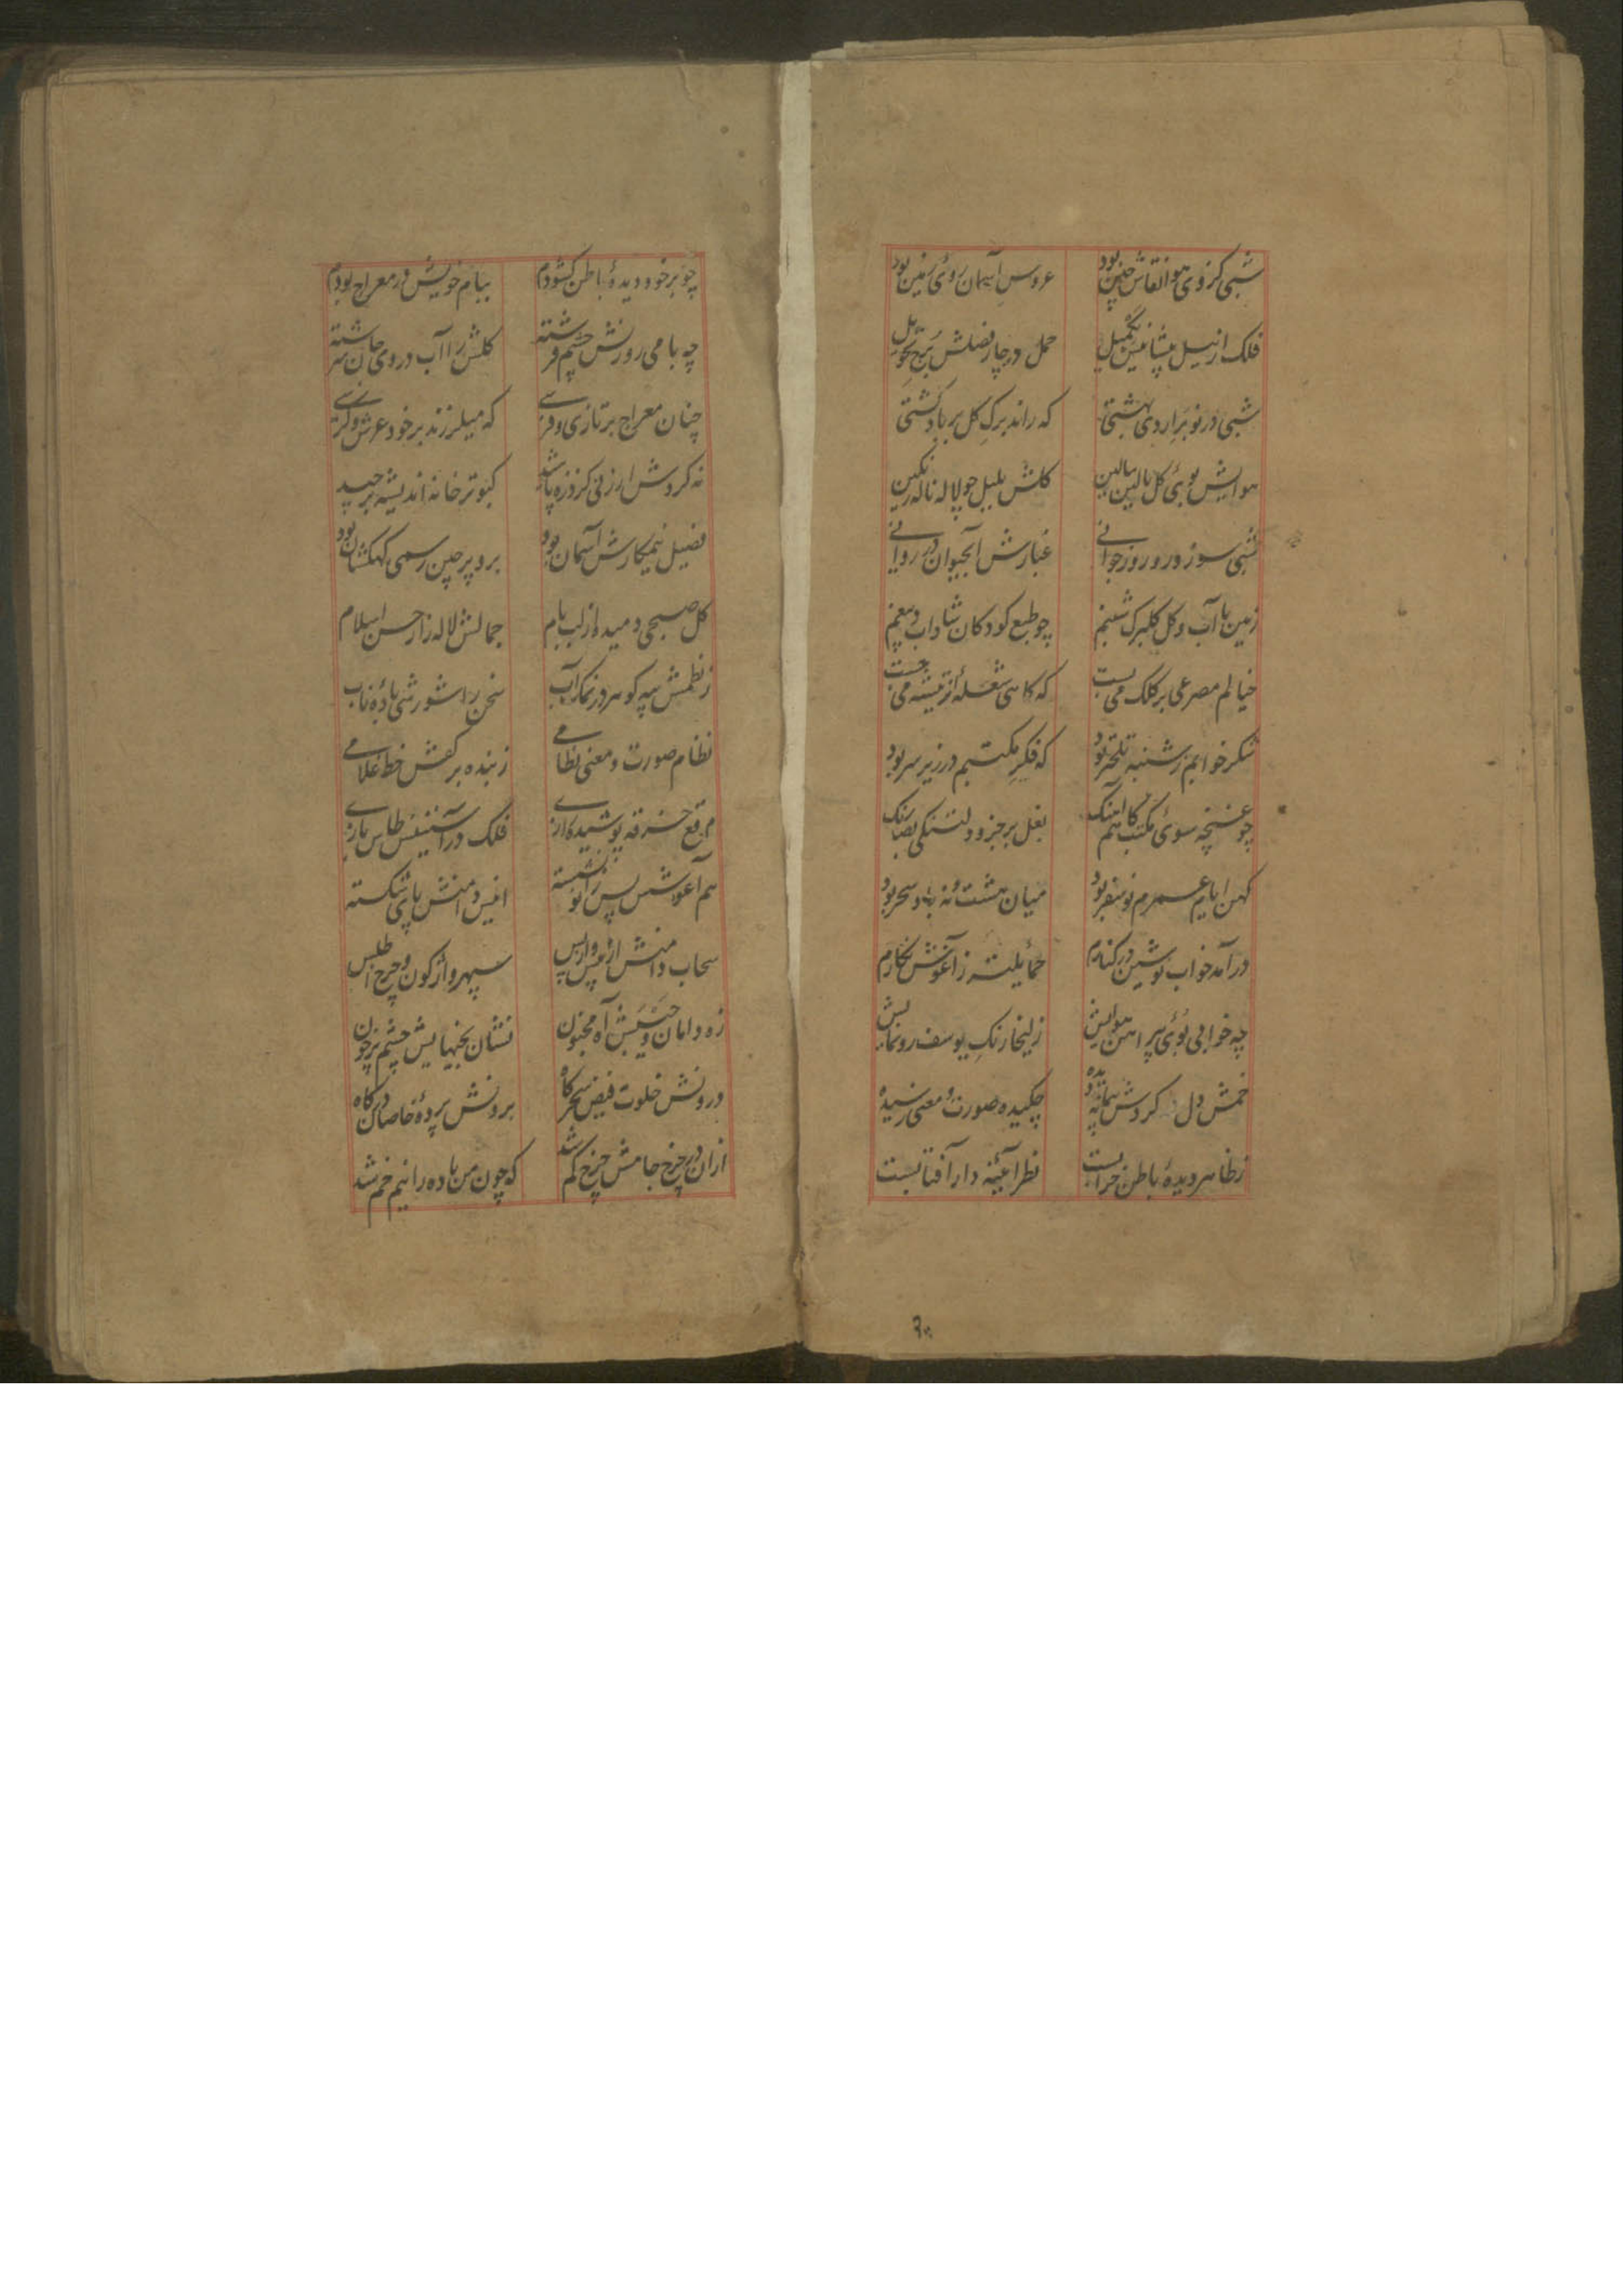 شبی کز وی هوا نقاش چین بود عروس آسمان روی زمین بود
فلک از نیل حمل در چار فصلش برج تحویل
شبی در نوبهار اردی بهشتی که راند برک کل بر باد کشتی
هوایش بوی کل بالین ببالین کلش بلبل چو لاله ناله رنکین
شبی سوز و روز جوانی غبارش آبحیوان در روانی
زمین با آب و کل کلبرک شبنم چو طبع کودکان شاداب و بیغم
خیالم مصرعی بر کلک می بست که کاهی شعلهٔ از تیشه می جست
شکر خوابم ز شنبه تلختر بود که فکر مکتبم در زیر سر بود
چو غنچه سوی مکتب کاهم آهنک بغل پر جزو و دلتنکی بصد رنک
کهن ایام عمرم نو سفر بود میان هشت و نه باد سحر بود
درآمد خواب نوشین در کنارم حمایلتر ز آغوش نکارم
چه خوابی بوی پیراهن هوایش زلیخا رنک یوسف رونمایش
خمش دل کردش پیمانه دیده چکیده صورت و معنی رسیده
ز ظاهر دیدهٔ باطن خرابست نظر آئینه دار آفتابست
چو بر خود دیدهٔ باطن کشودم ببام خویش در معراج بودم
چه بامی روزنش چشم فرشته کلش را آب در وی جان سرشته
چنان معراج بر تازی و فرسی که میلرزند بر خود عرش و کرسی
نه کردش ارزنی کز ذره پاشد کبوتر خانه اندیشه برچید
فصیل نیمکارش آسمان بود برو پرچین رسمی کهکشان بود
کل صبحی دمیده از لب بام جمالش لاله زار حسن اسلام
ز نظمش سپه کوهر در نمک آب سخن را شورشی بادهٔ ناب
نظام صورت و معنی نظامی ز بنده بر کفش خط غلامی
مرقع خرقه پوشیده کارزی فلک در آستینش طاس بازی
هم آغوش پس زانو نشسته انیس دامنش پای شکسته
سحاب دامنش از پیش و از پس سپهر واژکون و چرخ اطلس
زه دامان و جیبش آه مجنون نشان بخیهایش چشم پر خون
درونش خلوت فیض سحرکاه برونش پردهٔ خاصان درکاه
ازان در چرخ جامش چرخ کم شد که چون من باده را نیم خم شد
۳۰